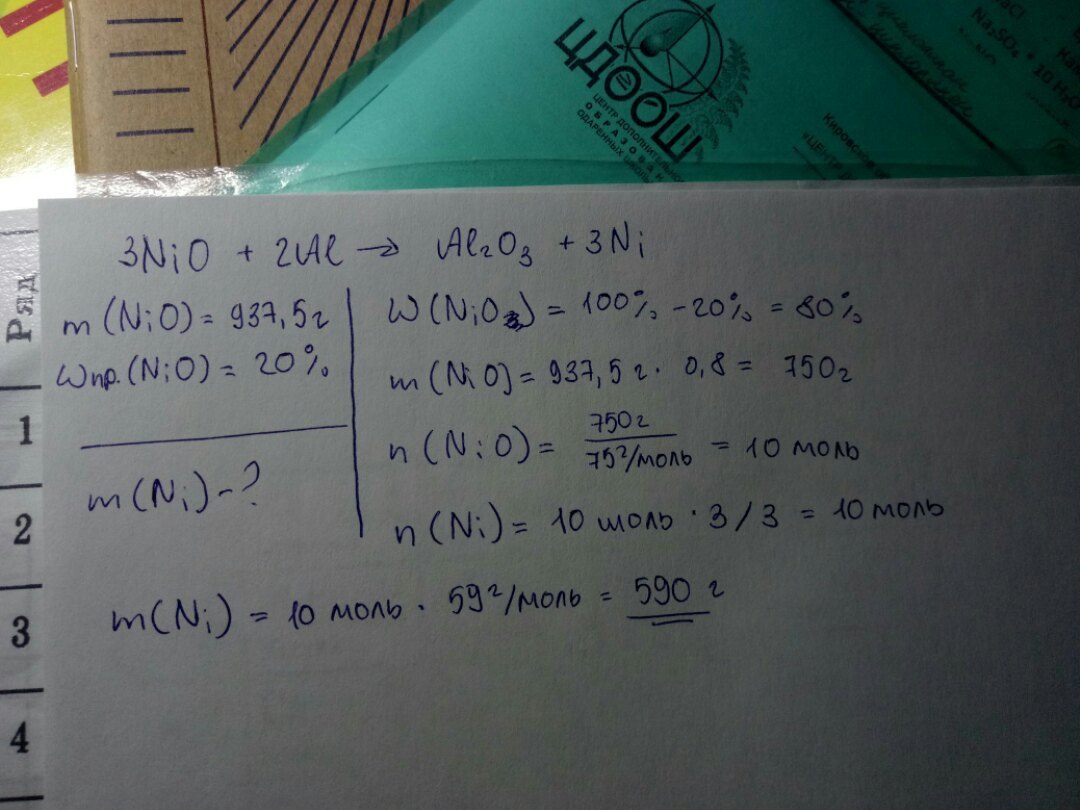 ЦДООШ
ЦЕНТР ДОПОЛНИТЕЛЬ
ОБРАЗОВА
ОДАРЕННЫХ
NaCl
Na₂SO₄ * 10 H₂O
Кировское
«ЦЕНТР
Ряд
1
2
3
4
3NiO + 2Al → Al₂O₃ + 3Ni
m (NiO) = 937,5г
ωпр.(NiO) = 20%
m(Ni) - ?
ω(NiO) = 100% - 20% = 80%
m(NiO) = 937,5 г · 0,8 = 750г
n (NiO) = 750г / 75г/моль = 10 моль
n (Ni) = 10 моль · 3/3 = 10 моль
m(Ni) = 10 моль · 59г/моль = 590 г